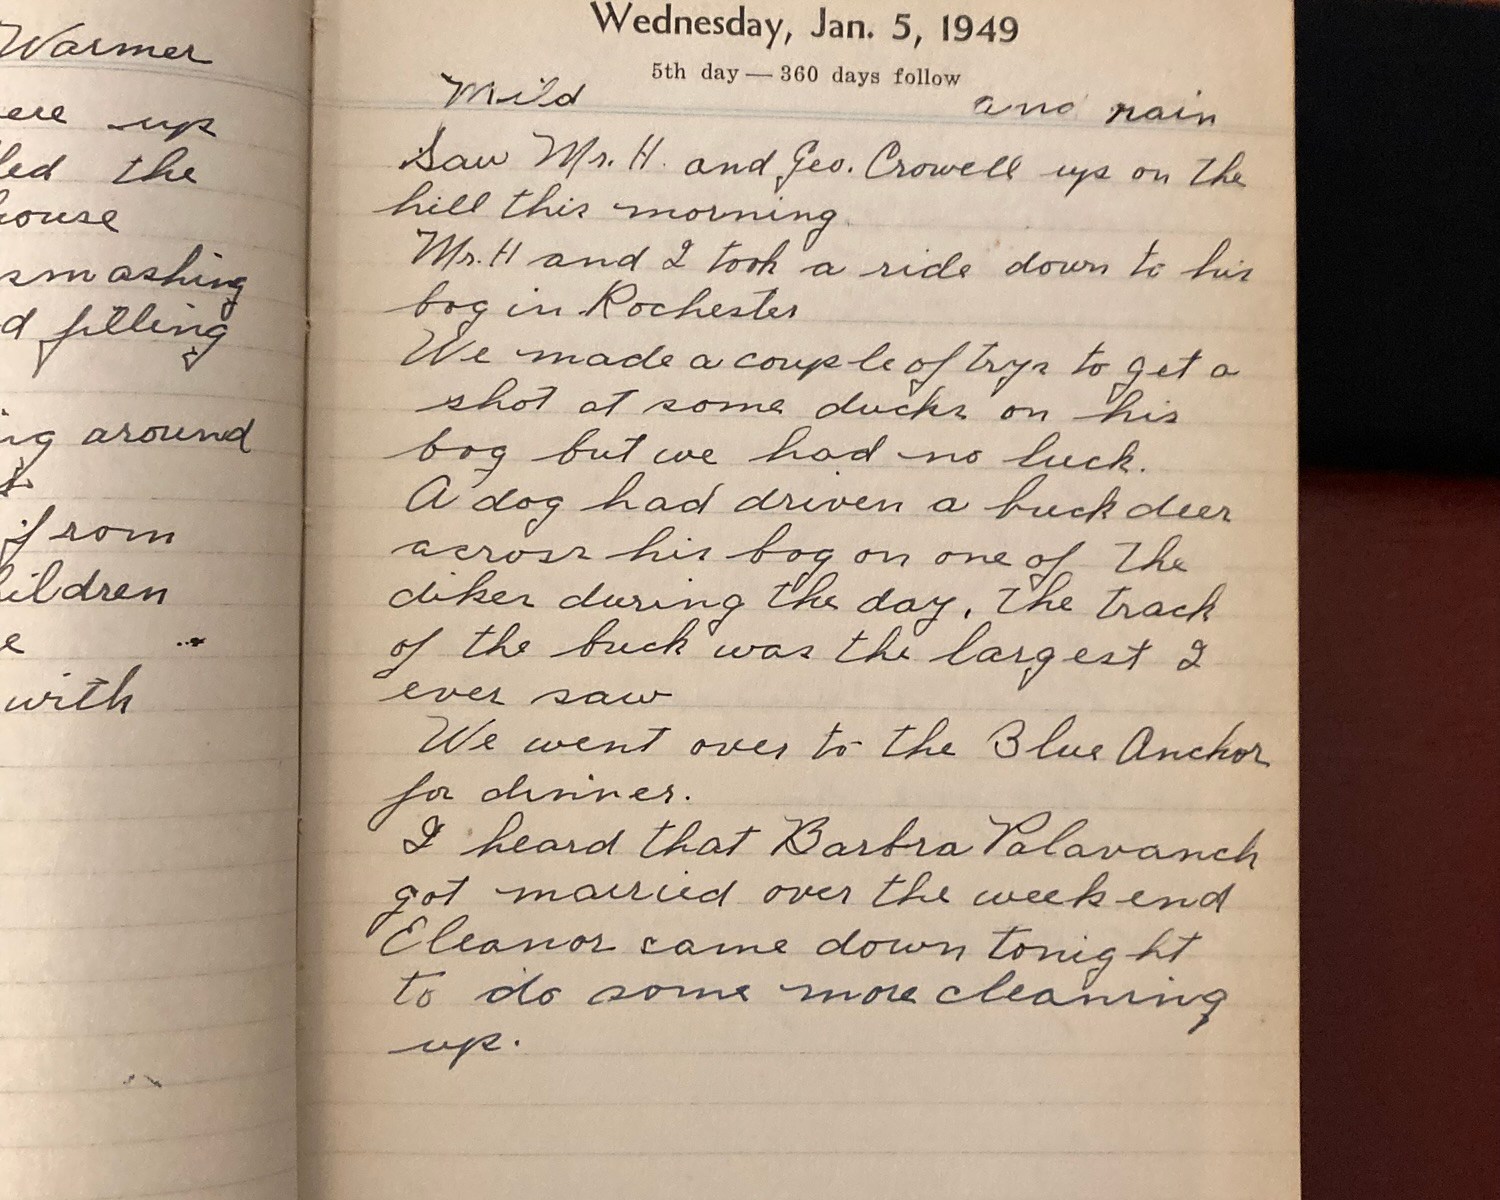 Warmer
up
the
house
smashing
filling
around
from
with
Wednesday, Jan. 5, 1949
5th day — 360 days follow
Mild and rain
Saw Mr. H. and Geo. Crowell up on the
hill this morning
Mr. H and I took a ride down to his
bog in Rochester
We made a couple of trys to get a
shot at some ducks on his
bog but we had no luck.
A dog had driven a buck deer
across his bog on one of the
dikes during the day. The track
of the buck was the largest I
ever saw
We went over to the Blue Anchor
for dinner.
I heard that Barbra Palavanch
got married over the week end
Eleanor came down tonight
to do some more cleaning
up.